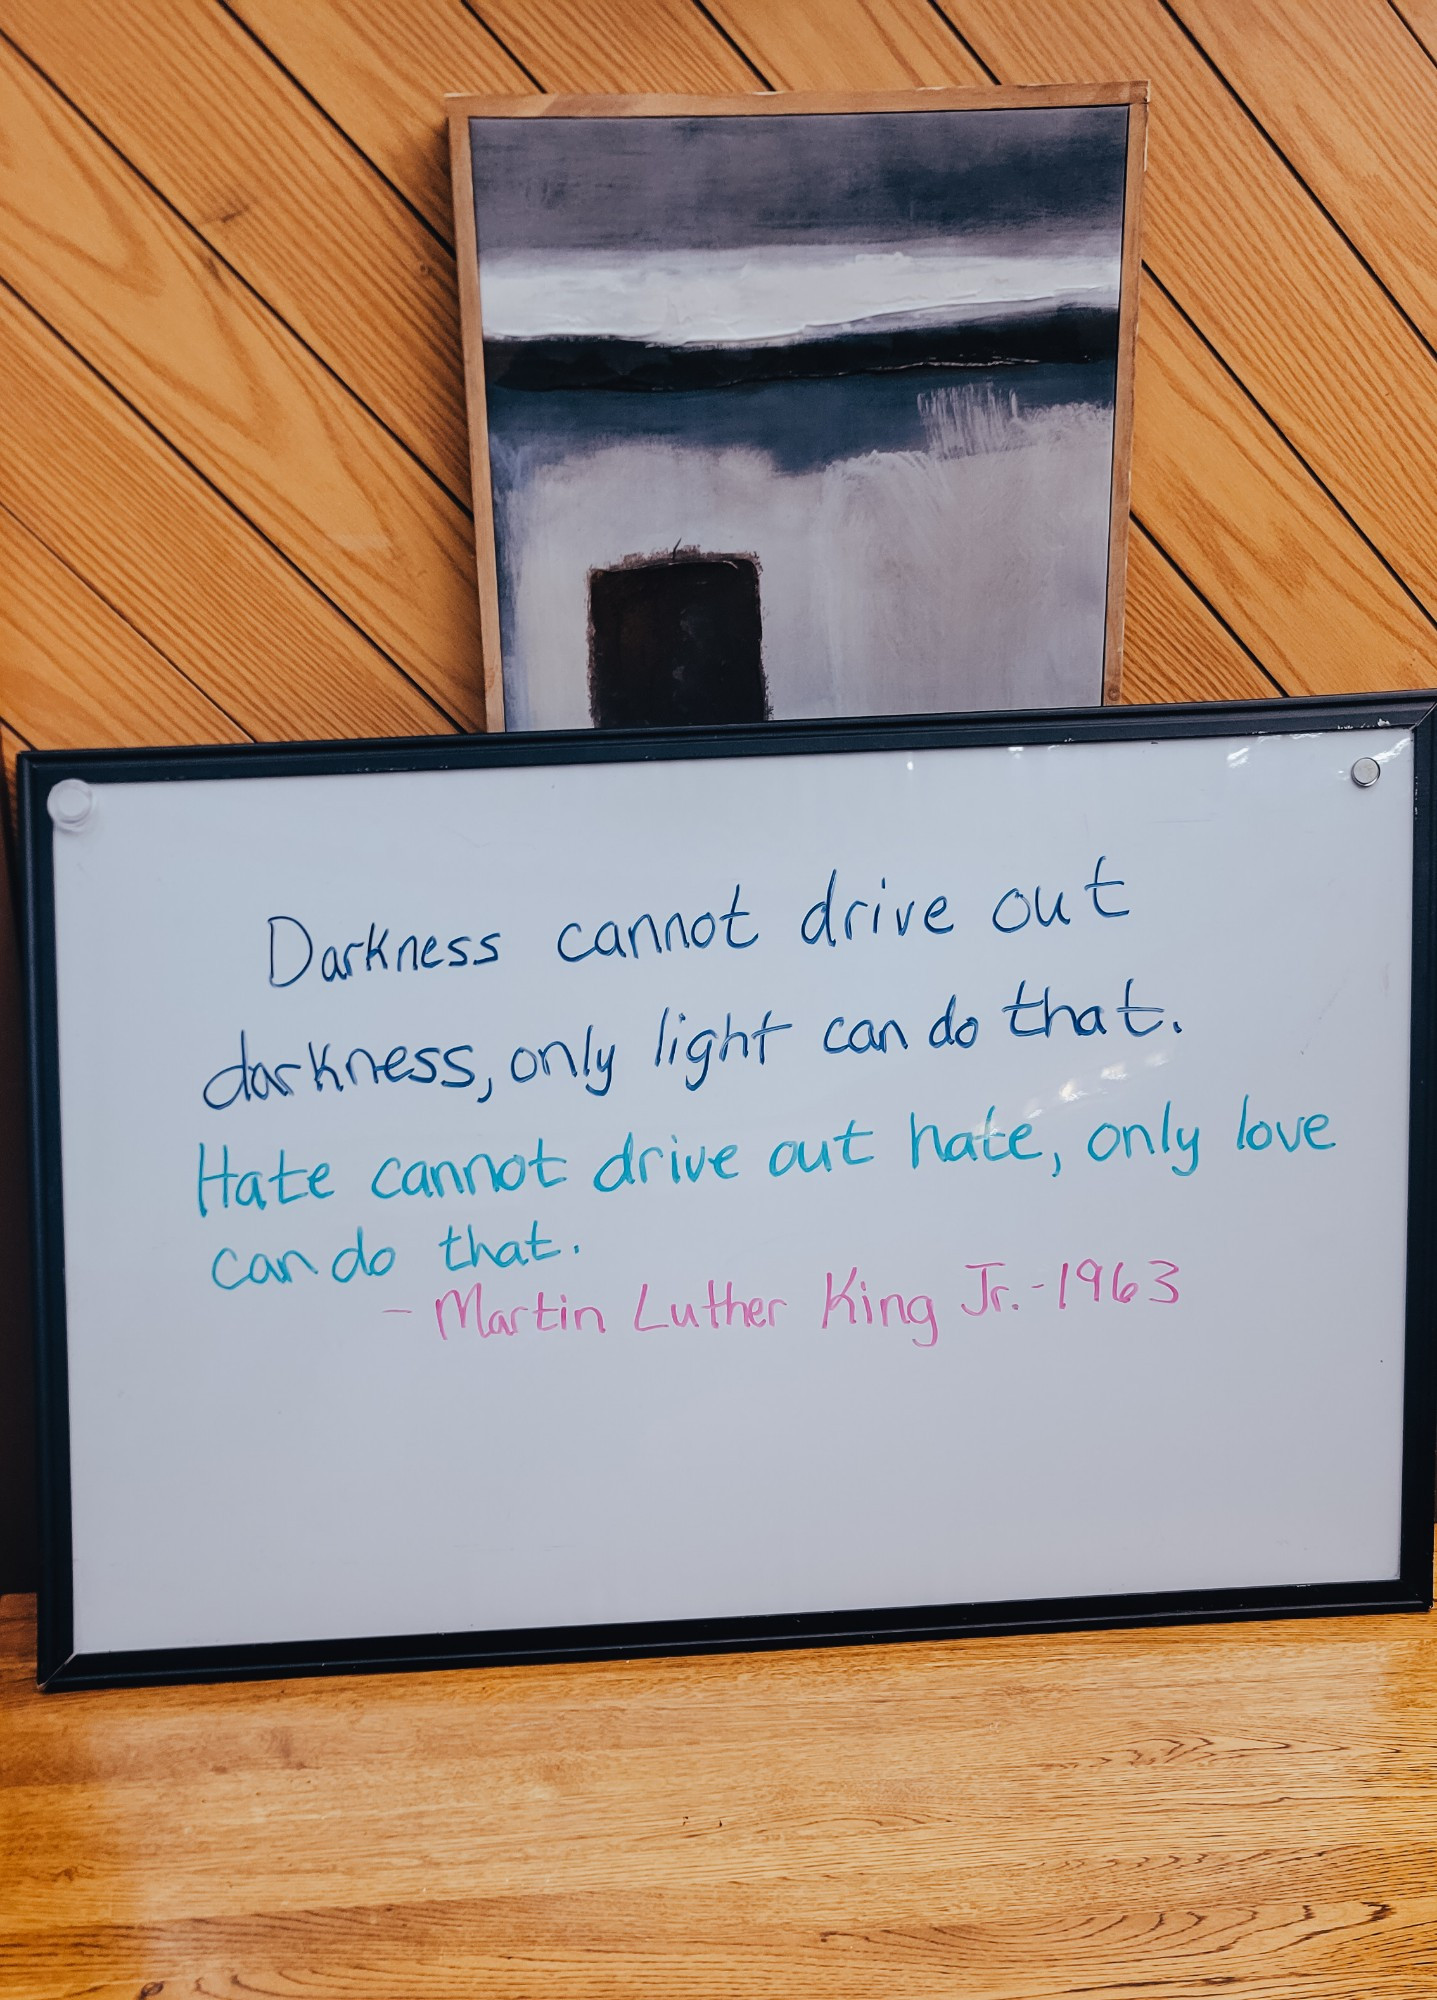 Darkness cannot drive out
darkness, only light can do that.
Hate cannot drive out hate, only love
can do that.
- Martin Luther King Jr. - 1963